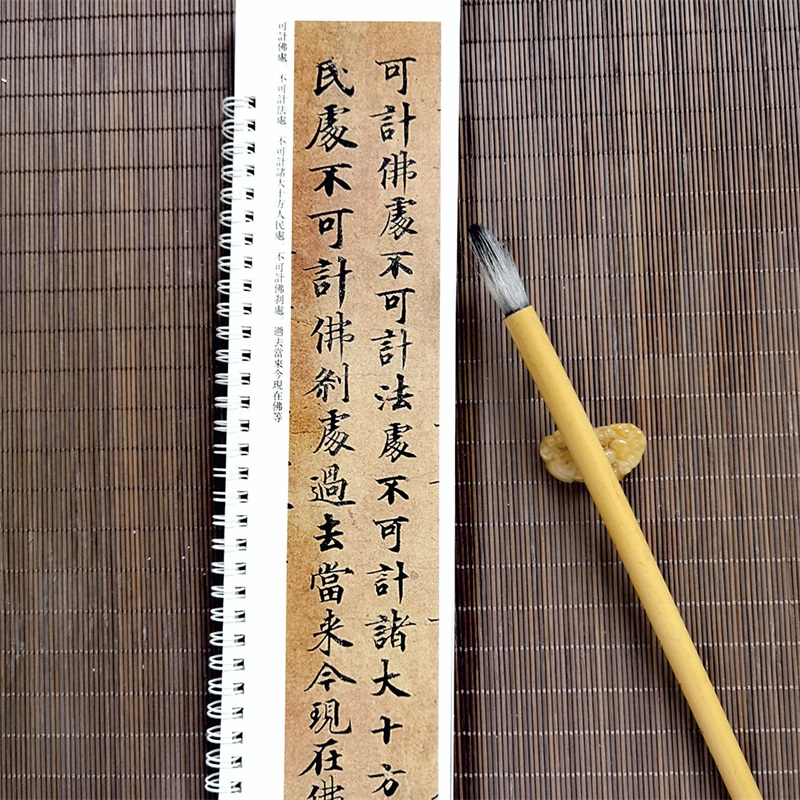 可計佛處不可計法處不可計諸大十方
民處不可計佛刹處過去當来今現在佛
可計佛處 不可計法處 不可計諸大十方人民處 不可計佛刹處 過去當來今現在佛等